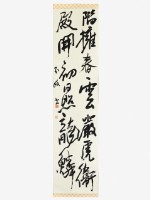 階擁春雲嚴虎衛
殿開初日照龍鱗